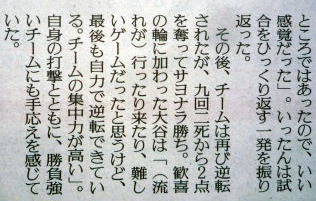 ところではあったので、いい
感覚だった」。いったんは試
合をひっくり返す一発を振り
返った。
その後、チームは再び逆転
されたが、九回二死から２点
を奪ってサヨナラ勝ち。歓喜
の輪に加わった大谷は「（流
れが）行ったり来たり、難し
いゲームだったと思うけど、
最後も自力で逆転できてい
る。チームの集中力が高い」。
自身の打撃とともに、勝負強
いチームにも手応えを感じて
いた。